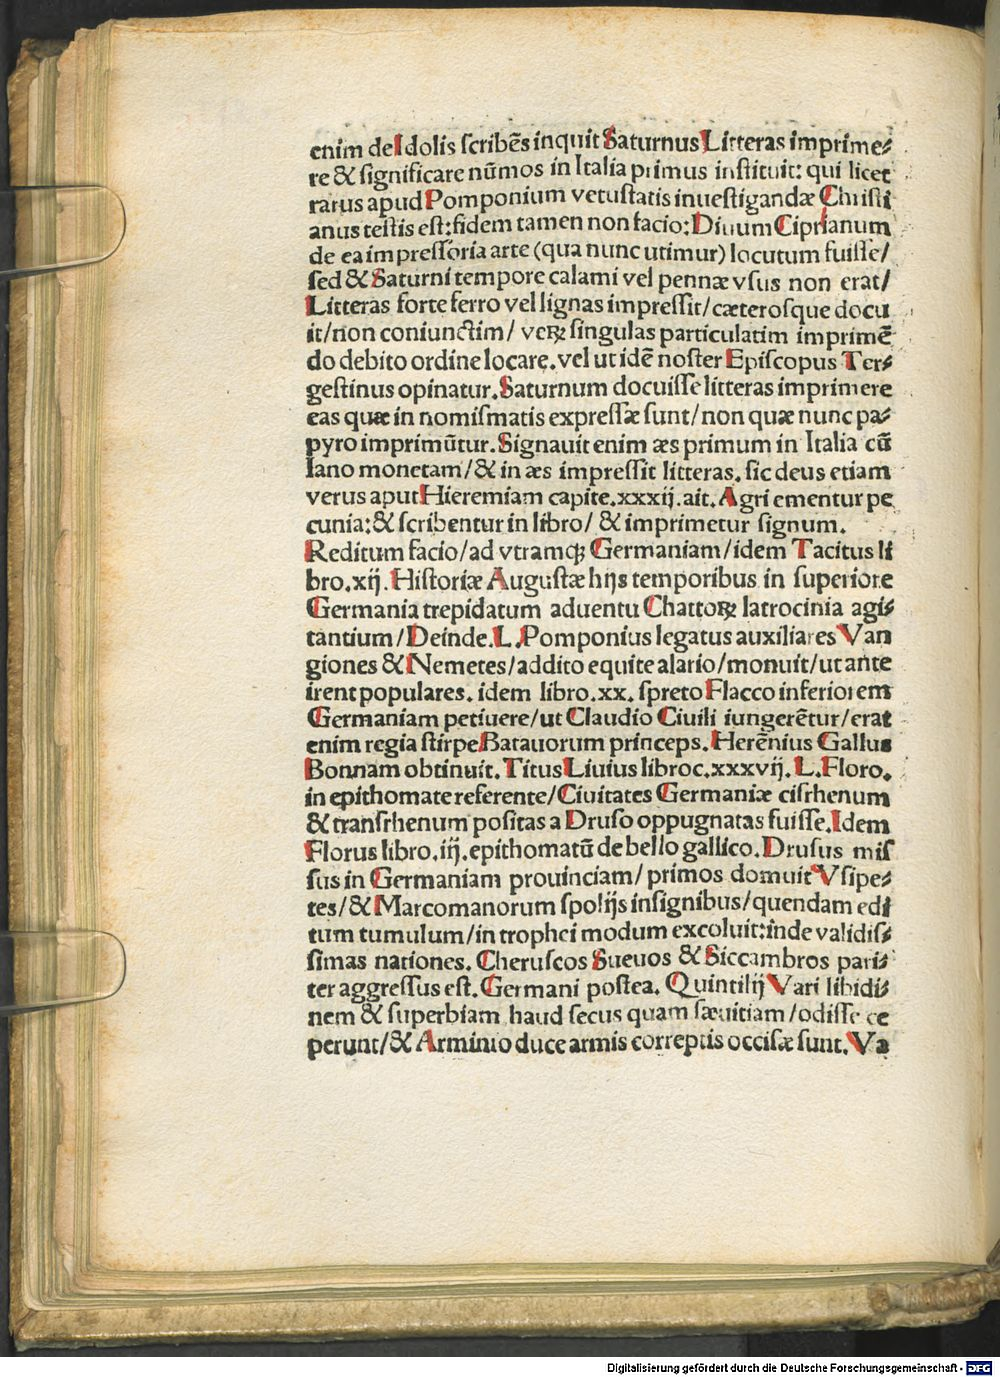 enim de Idolis scribēs inquit Saturnus Litteras imprime⸗
re & significare nūmos in Italia primus instituit: qui licet
rarus apud Pomponium vetustatis inuestigandæ Christi
anus testis est: fidem tamen non facio: Diuum Ciprianum
de ea impressoria arte (qua nunc utimur) locutum fuisse/
sed & Saturni tempore calami vel pennæ vsus non erat/
Litteras forte ferro vel lignas impressit/ cæterosque docu
it/ non coniunctim/ veꝝ singulas particulatim imprimē
do debito ordine locare. vel ut idē noster Episcopus Ter⸗
gestinus opinatur. Saturnum docuisse litteras imprimere
eas quæ in nomismatis expressæ sunt/ non quæ nunc pa⸗
pyro imprimūtur. Signauit enim æs primum in Italia cū
Iano monetam/ & in æs impressit litteras. sic deus etiam
verus aput Hieremiam capite. xxxij. ait. Agri ementur pe
cunia: & scribentur in libro/ & imprimetur signum.
Reditum facio/ ad vtramqꝫ Germaniam/ idem Tacitus li
bro. xij. Historiæ Augustæ hijs temporibus in superiore
Germania trepidatum aduentu Chattoꝝ latrocinia agi⸗
tantium/ Deinde. L. Pomponius legatus auxiliares Van
giones & Nemetes/ addito equite alario/ monuit/ ut ante
irent populares. idem libro. xx. spreto Flacco inferiorem
Germaniam petiuere/ ut Claudio Ciuili iungerētur/ erat
enim regia stirpe Batauorum princeps. Herēnius Gallus
Bonnam obtinuit. Titus Liuius libro c.xxxvij. L. Floro.
in epithomate referente/ Ciuitates Germaniæ cisrhenum
& transrhenum positas a Druso oppugnatas fuisse. Idem
Florus libro. iij. epithomatū de bello gallico. Drusus mis
sus in Germaniam prouinciam/ primos domuit Vsipe⸗
tes/ & Marcomanorum spolijs insignibus/ quendam edi
tum tumulum/ in trophei modum excoluit: inde validis⸗
simas nationes. Cheruscos Sueuos & Siccambros pari⸗
ter aggressus est. Germani postea. Quintilij Vari libidi⸗
nem & superbiam haud secus quam sæuitiam/ odisse ce
perunt/ & Arminio duce armis correptis occisæ sunt. Va
Digitalisierung gefördert durch die Deutsche Forschungsgemeinschaft - DFG